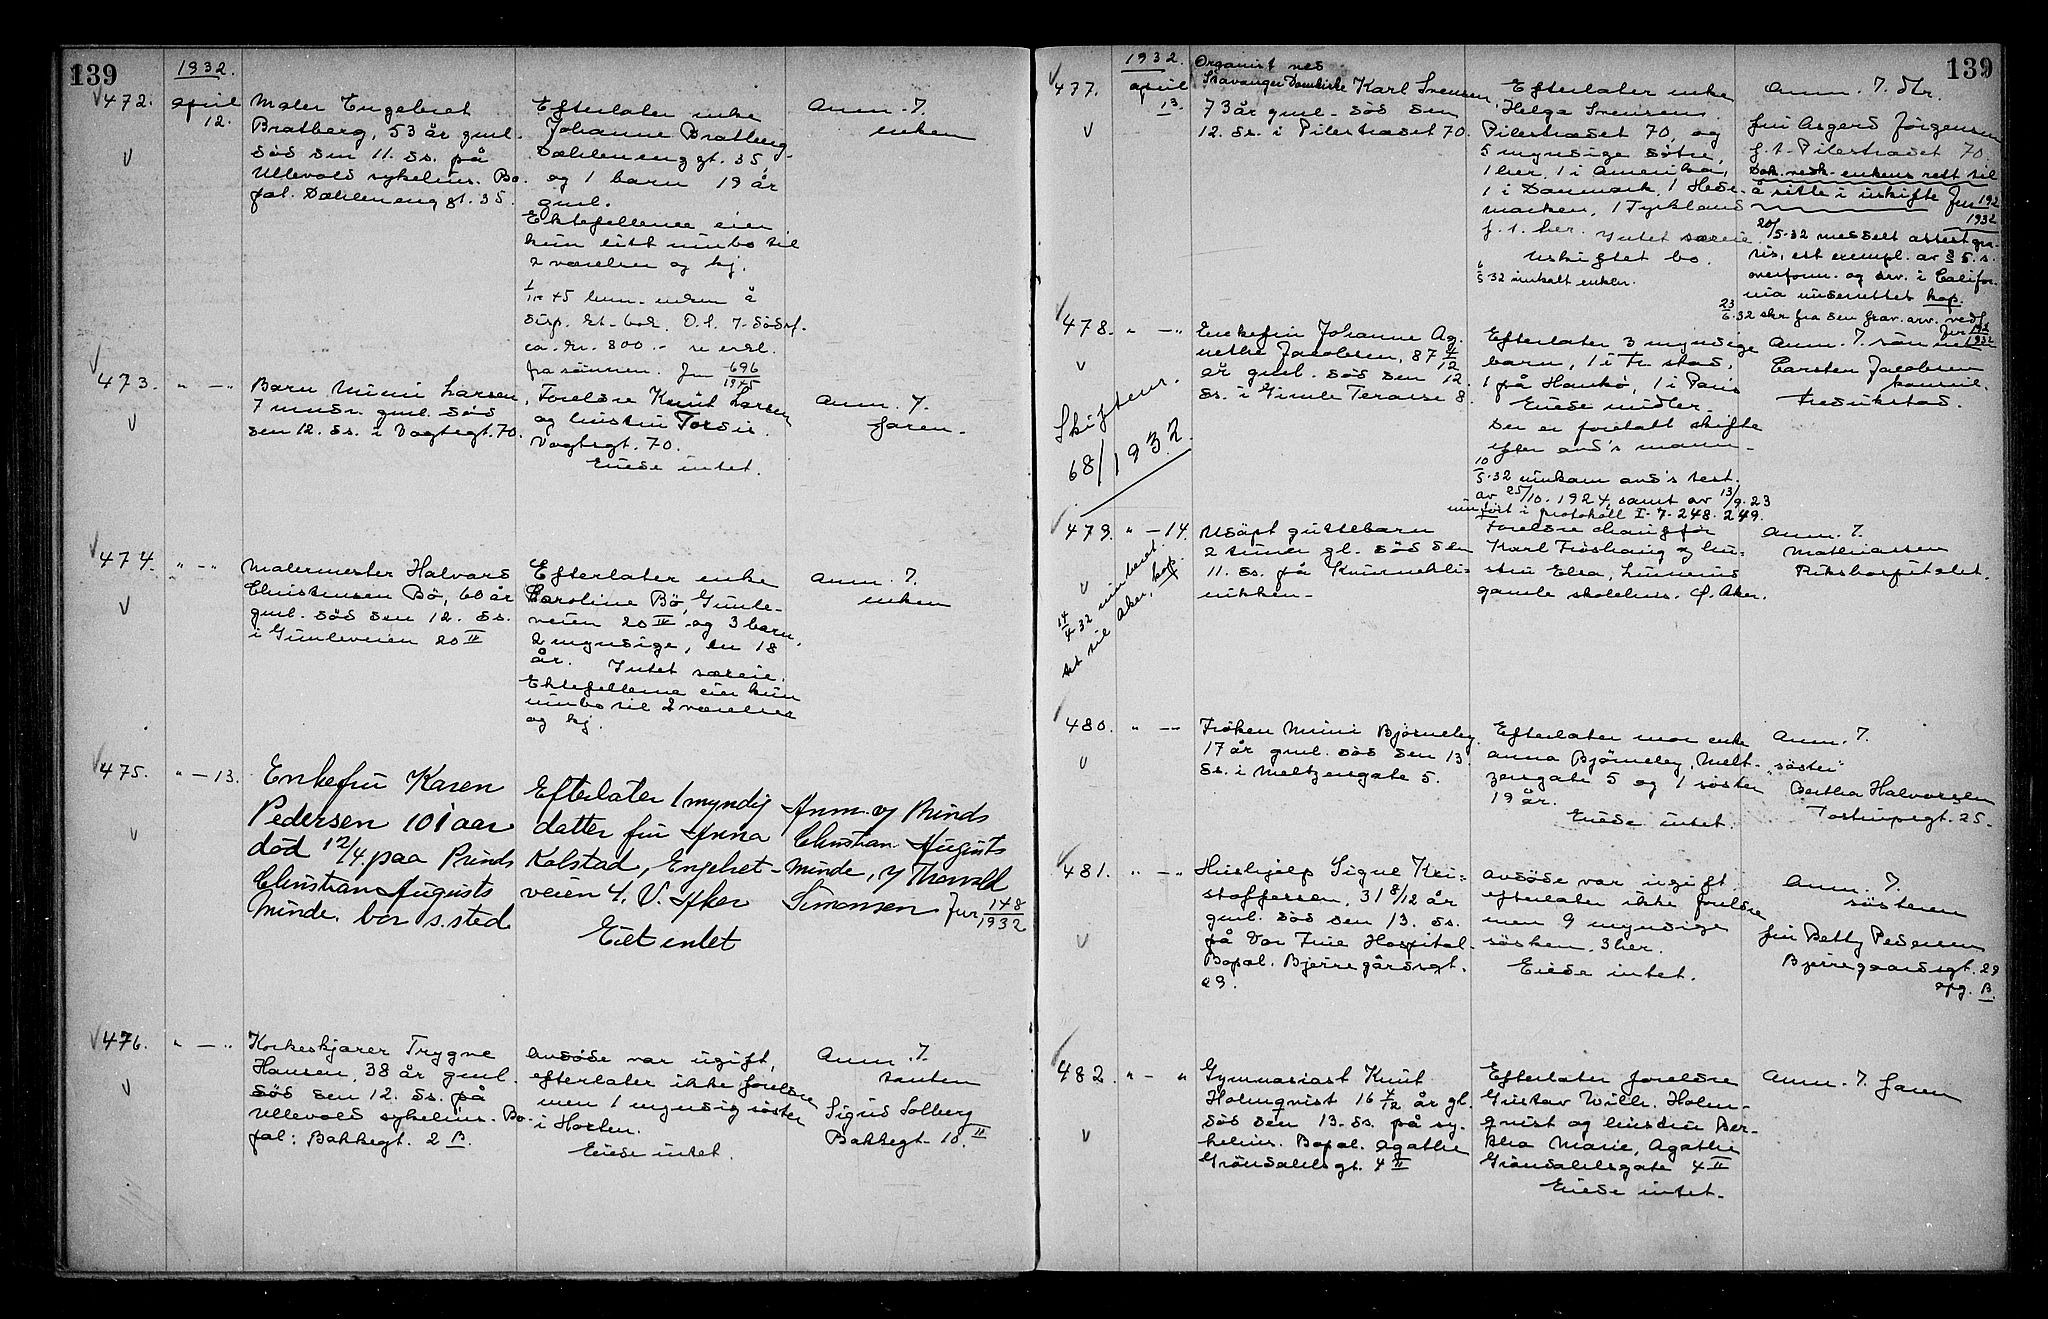 139
1932.
472.
april
12.
Maler Engebret
Bratberg, 53 år gml.
död den 11. ds. på
Ullevold sykehus. Bo-
pæl. Dæhleneng gt. 35.
Efterlater enke
Johanne Bratberg
Dæhleneng gt. 35,
og 1 barn 19 år
gml.
Ektefellene eier
kun litt innbo til
2 værelser og kj.
Anm. 7.
enken
ca. kr. 800.-
fra sönnen. Jnr 696/1945
473.
" — "
Barn Mimi Larsen,
7 mndr. gml. död
den 12. ds. i Vogtsgt. 70.
Foreldre Knut Larsen
og hustru Tordis.
Vogtsgt. 70.
Eiede intet.
Anm. 7.
faren.
474.
" — "
Malermester Halvard
Christensen Bö, 60 år
gml. död den 12. ds.
i Gimleveien 20 II
Efterlater enke
Karoline Bö, Gimle-
veien 20 II og 3 barn,
2 myndige, en 18
år. Intet særeie.
Ektefellene eier kun
innbo til 2 værelser
og kj.
Anm. 7.
enken
475.
" — 13.
Enkefru Karen
Pedersen 101 aar
död 12/4. paa Prinds
Christian Augusts
Minde. bor s. sted
Efterlater 1 myndig
datter fru Anna
Kolstad, Engehet-
veien 4. V. Aker
Eiet intet
Anm. af Prinds
Christian Augusts
Minde, v/ Thorvald
Simonsen Jnr 148/1932
476.
" — "
Korkeskjærer Trygve
Hansen, 38 år gml.
död den 12. ds. på
Ullevold sykehus. Bo-
pæl: Bakkegt. 2 B.
Avdöde var ugift,
efterlater ikke foreldre
men 1 myndig söster
i Horten.
Eiede intet.
Anm. 7.
tanten
Sigrid Solberg
Bakkegt. 18. II
139
1932.
477.
april
13.
Organist ved
Stavanger Domkirke Karl Svensen,
73 år gml. död den
12. ds. i Pilestrædet 70.
Efterlater enke
Helga Svensen.
Pilestrædet 70, og
5 myndige dötre,
1 her, 1 i Amerika,
1 i Danmark, 1 Hede-
marken, 1 Tyskland
f. t. her. Intet særeie
Uskiftet bo.
6/5 32 innkalt enken.
Anm. 7. dtr.
fru Asgerd Jörgensen
f. t. Pilestrædet 70.
Dok. vedk. enkens rett til
å sitte i uskifte Jnr 192/1932
20/5.32 meddelt attest gra-
tis, ett exempl. av § 5. s.
overform. og arv. i Califor-
nia underrettet kop.
23/6.32 skr fra den frav. arv. vedl.
Jnr 192/1932
478.
" — "
Enkefru Johanne Ag-
nethe Jacobsen, 87 4/12
år gml. död den 12.
ds. i Gimle Terasse 8.
Skiftem.
68/1932.
Efterlater 3 myndige
barn, 1 i Fr.stad,
1 på Hankö, 1 i Paris
Eiede midler.
Der er foretatt skifte
efter avd's mann.
10/5.32 innkom avd's test.
av 25/10. 1924, samt av 13/9.23
innfört i protokoll I. 7. 248. 249.
Anm. 7. sönnen
Carsten Jacobsen
Fredrikstad.
479.
" — 14.
Udöpt guttebarn
2 timer gl. död den
11. ds. på Kvinnekli-
nikken.
14/4 32 innberet-
tet til Aker, kop.
Foreldre chauffør
Karl Fröshaug og hu-
stru Elsa, Linnerud
gamle skolehus. Ö. Aker.
Anm. 7.
Mathiassen
Rikshospitalet.
480.
" — "
Fröken Mimi Björneby,
17 år gml. död den 13.
ds. i Meltzersgate 5.
Efterlater mor enke
Anna Björneby, Melt-
zersgate 5 og 1 söster
19 år.
Eiede intet.
Anm. 7.
"söster"
Bertha Halvorsen
Tostrupsgt. 25.
481.
" — "
Hushjelp Signe Kri-
stoffersen, 31 8/12 år
gml. död den 13. ds.
på Vor Frue Hospital.
Bopæl. Bjerregårdsgt.
29.
Avdöde var ugift
efterlater ikke foreldre
men 9 myndige
sösken, 3 her.
Eiede intet.
Anm. 7.
sösteren
fru Betty Pedersen
Bjerregaardsgt. 29
opg. B.
482.
" — "
Gymnasiast Knut
Holmqvist 16 7/12 år gl.
död den 13. ds. på sy-
kehus. Bopæl. Agathe
Gröndahlsgt. 4 II
Efterlater foreldre
Gustav Wilh. Holm-
qvist og hustru Ber-
tha Marie, Agathe
Gröndahlsgate 4 II
Eiede intet.
Anm. 7. faren